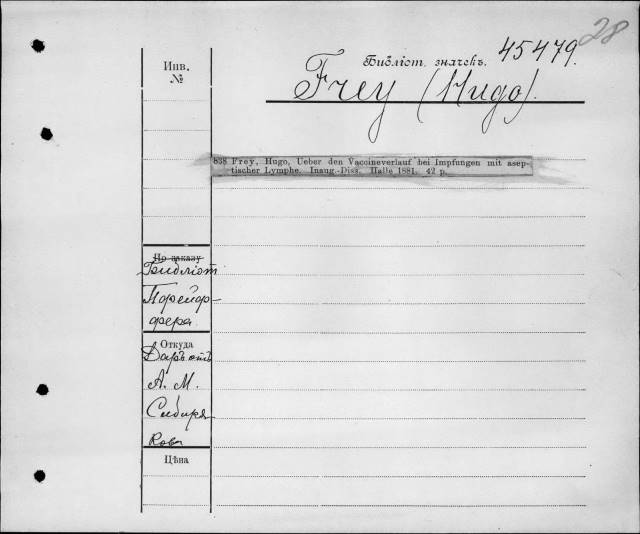 28
Библіот. значекъ. 45479.
Инв.
№
Frey (Hugo).
838 Frey, Hugo, Ueber den Vaccineverlauf bei Impfungen mit asep-
tischer Lymphe. Inaug.-Diss. Halle 1881. 42 p.
По заказу
Библіот.
Пфейф-
фера
Откуда
Даръ отъ
А. М.
Сибиря-
кова
Цѣна